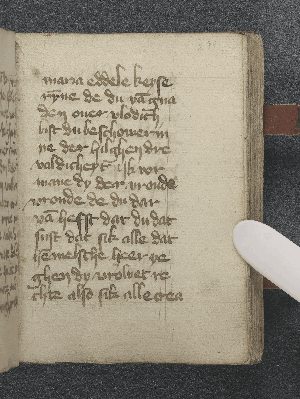 maria eddele keyse
rÿne de du vā gna
den ouer vlodich
bist du beschowerin
ne der hilghen dre
valdicheyt Ik vor
mane dy der vroude
vronde de du dar
vā hefst dat du dat
sust dat sik alle dat
hēmelsche heer ye
ghen dy vrolwet re
chte also sik alle crea